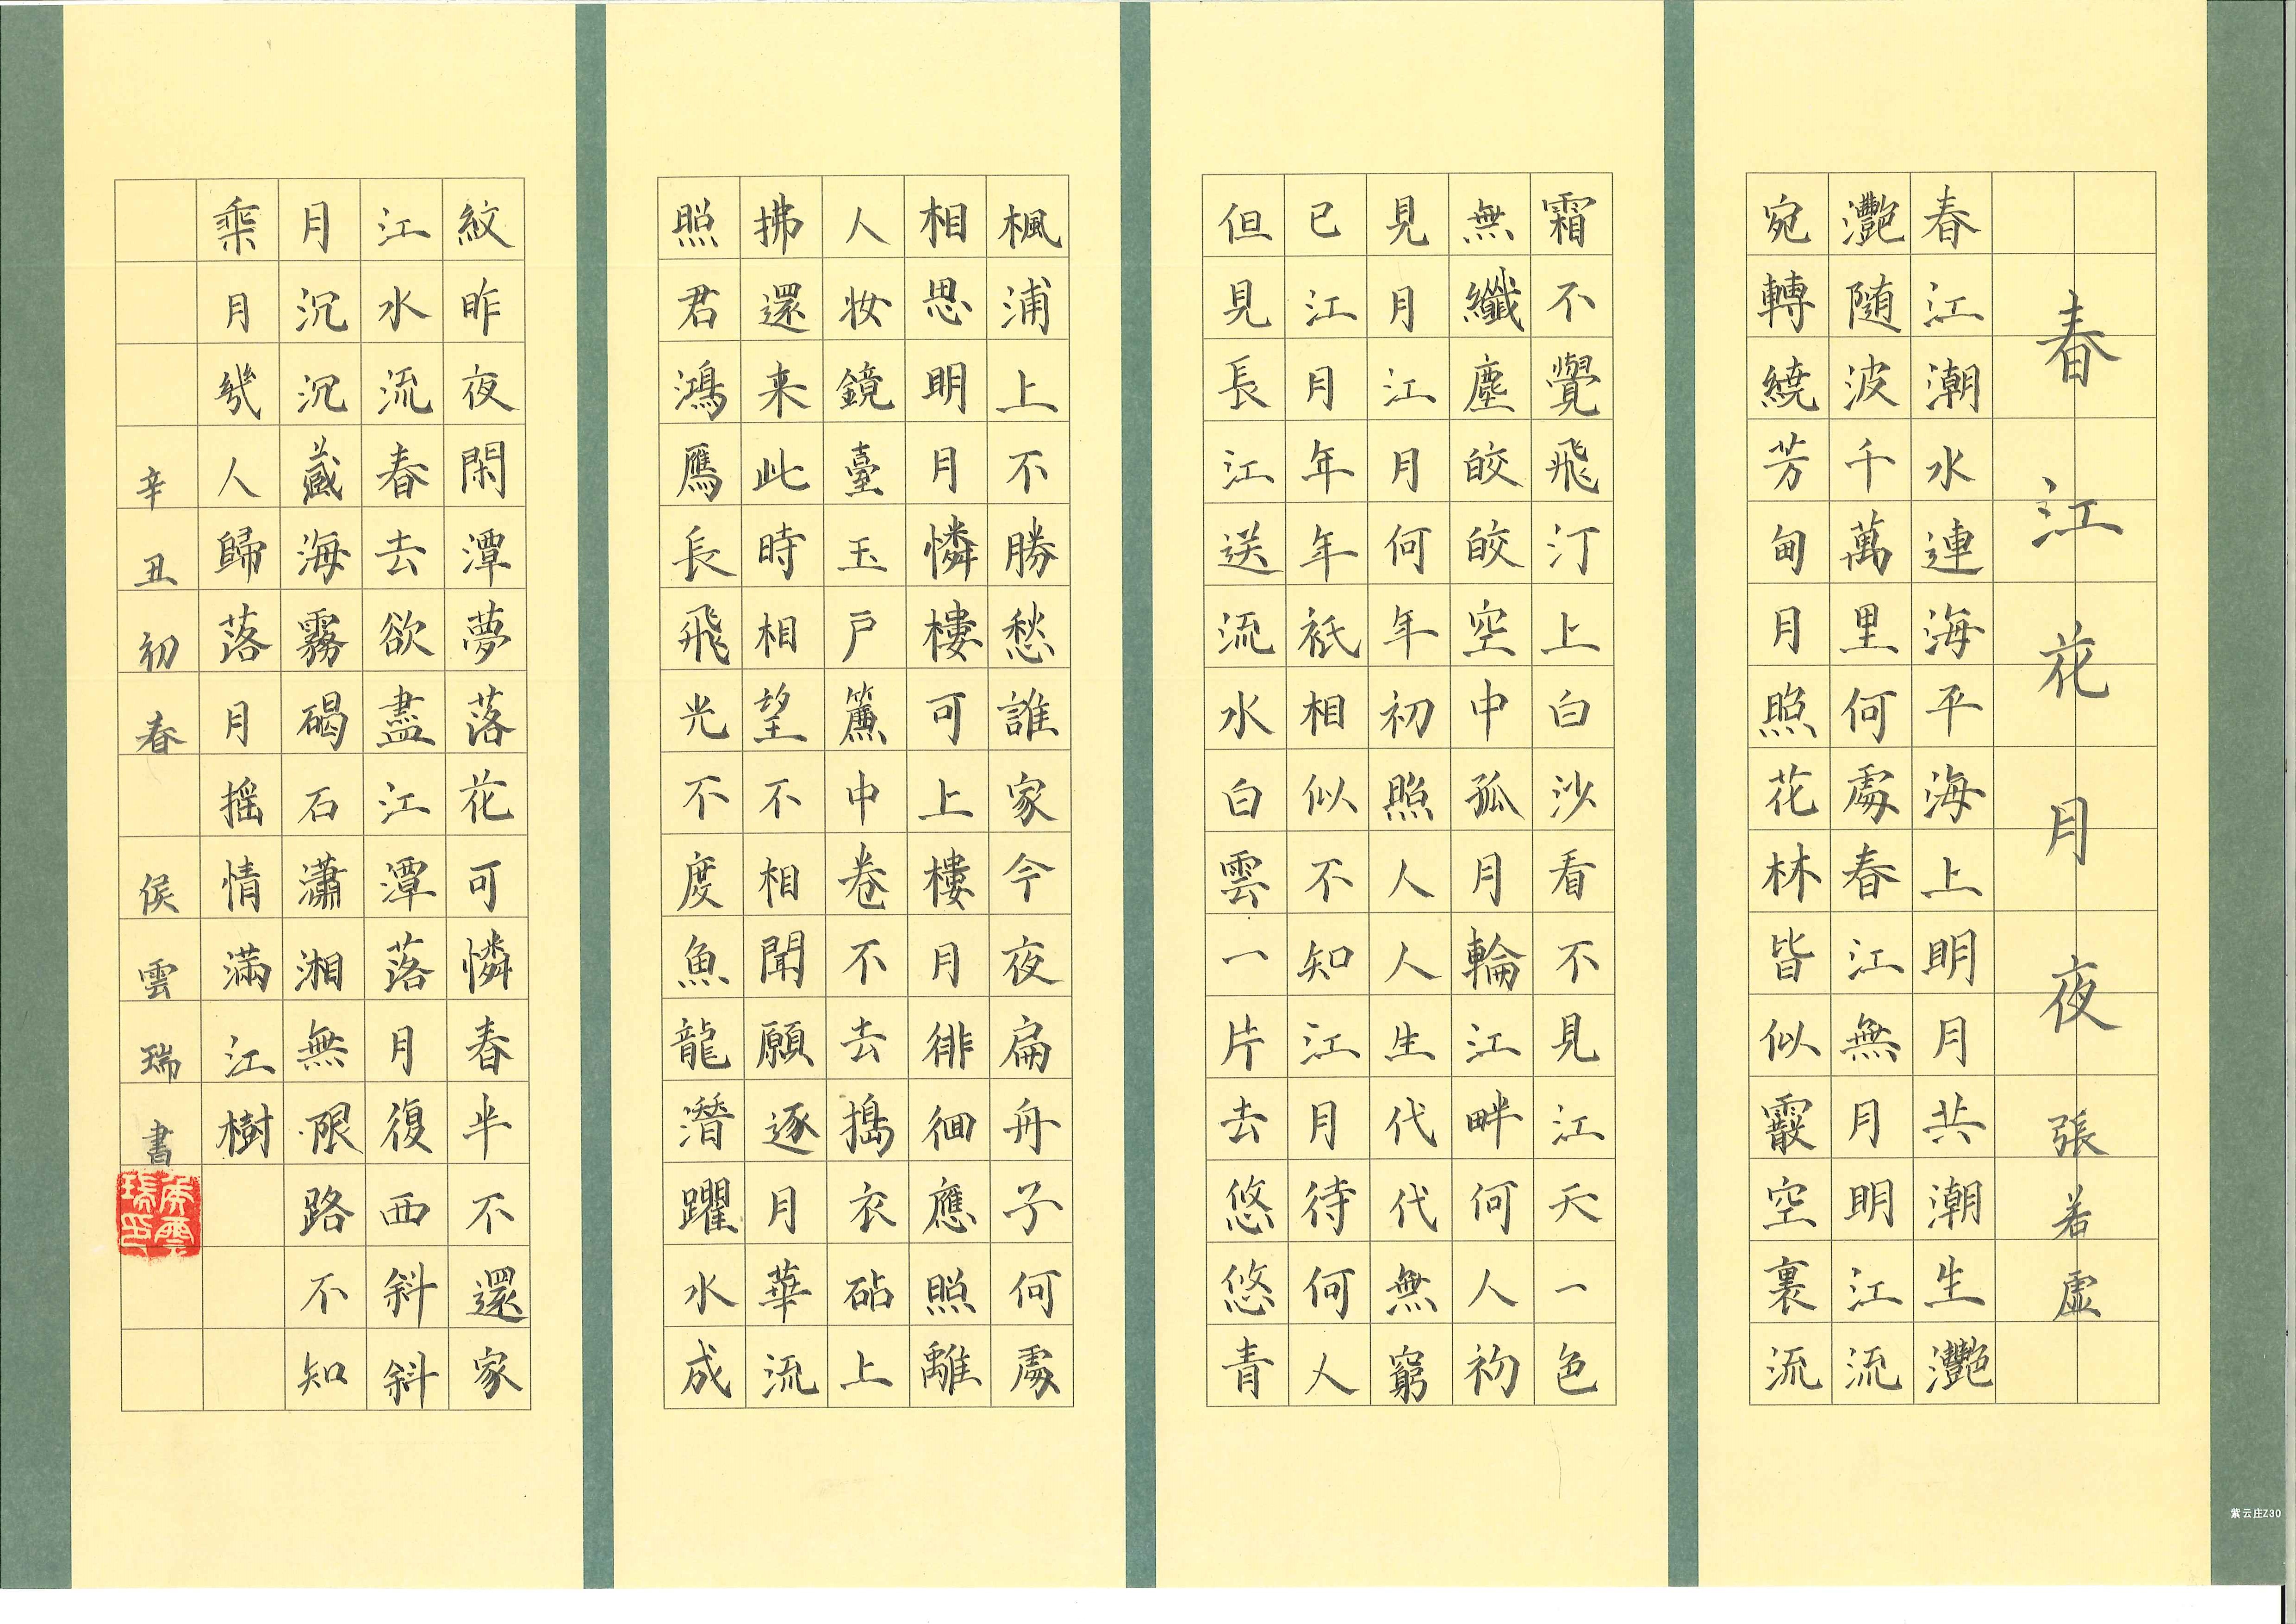 春江花月夜 張若虛
春江潮水連海平海上明月共潮生灩
灩随波千萬里何處春江無月明江流
宛轉繞芳甸月照花林皆似霰空裏流
霜不覺飛汀上白沙看不見江天一色
無纖塵皎皎空中孤月輪江畔何人初
見月江月何年初照人人生代代無窮
已江月年年衹相似不知江月待何人
但見長江送流水白雲一片去悠悠青
楓浦上不勝愁誰家今夜扁舟子何處
相思明月憐樓可上樓月徘徊應照離
人妝鏡臺玉戶簾中卷不去搗衣砧上
拂還来此時相望不相聞願逐月華流
照君鴻鴈長飛光不度魚龍潛躍水成
紋昨夜閑潭夢落花可憐春半不還家
江水流春去欲盡江潭落月復西斜斜
月沉沉藏海霧碣石瀟湘無限路不知
乘月幾人歸落月摇情滿江樹
辛丑初春 侯雲瑞書
侯雲瑞印
紫云庄Z30